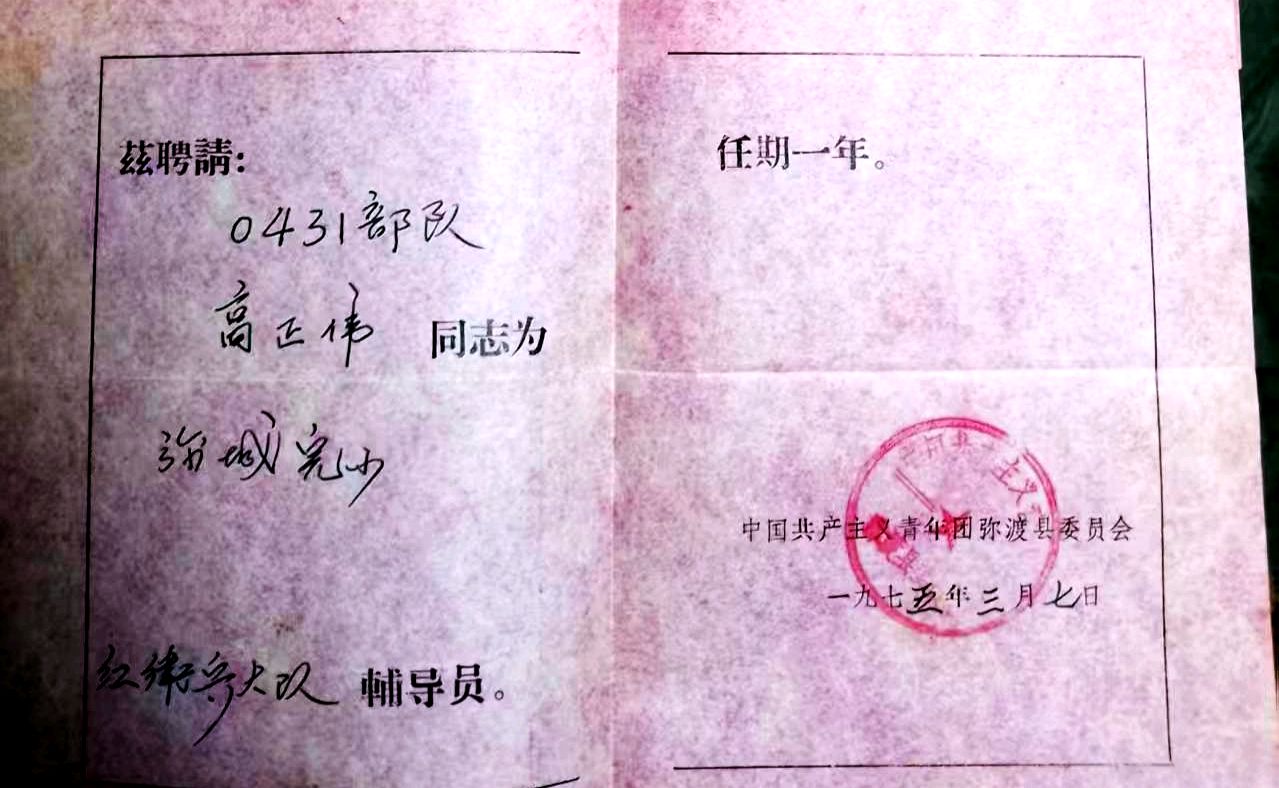 茲聘請:
0431部队
高正伟 同志为
弥城完小
红衛兵大队 輔导员。
任期一年。
主义
中国共产主义青年团弥渡县委员会
一九七五年三月七日